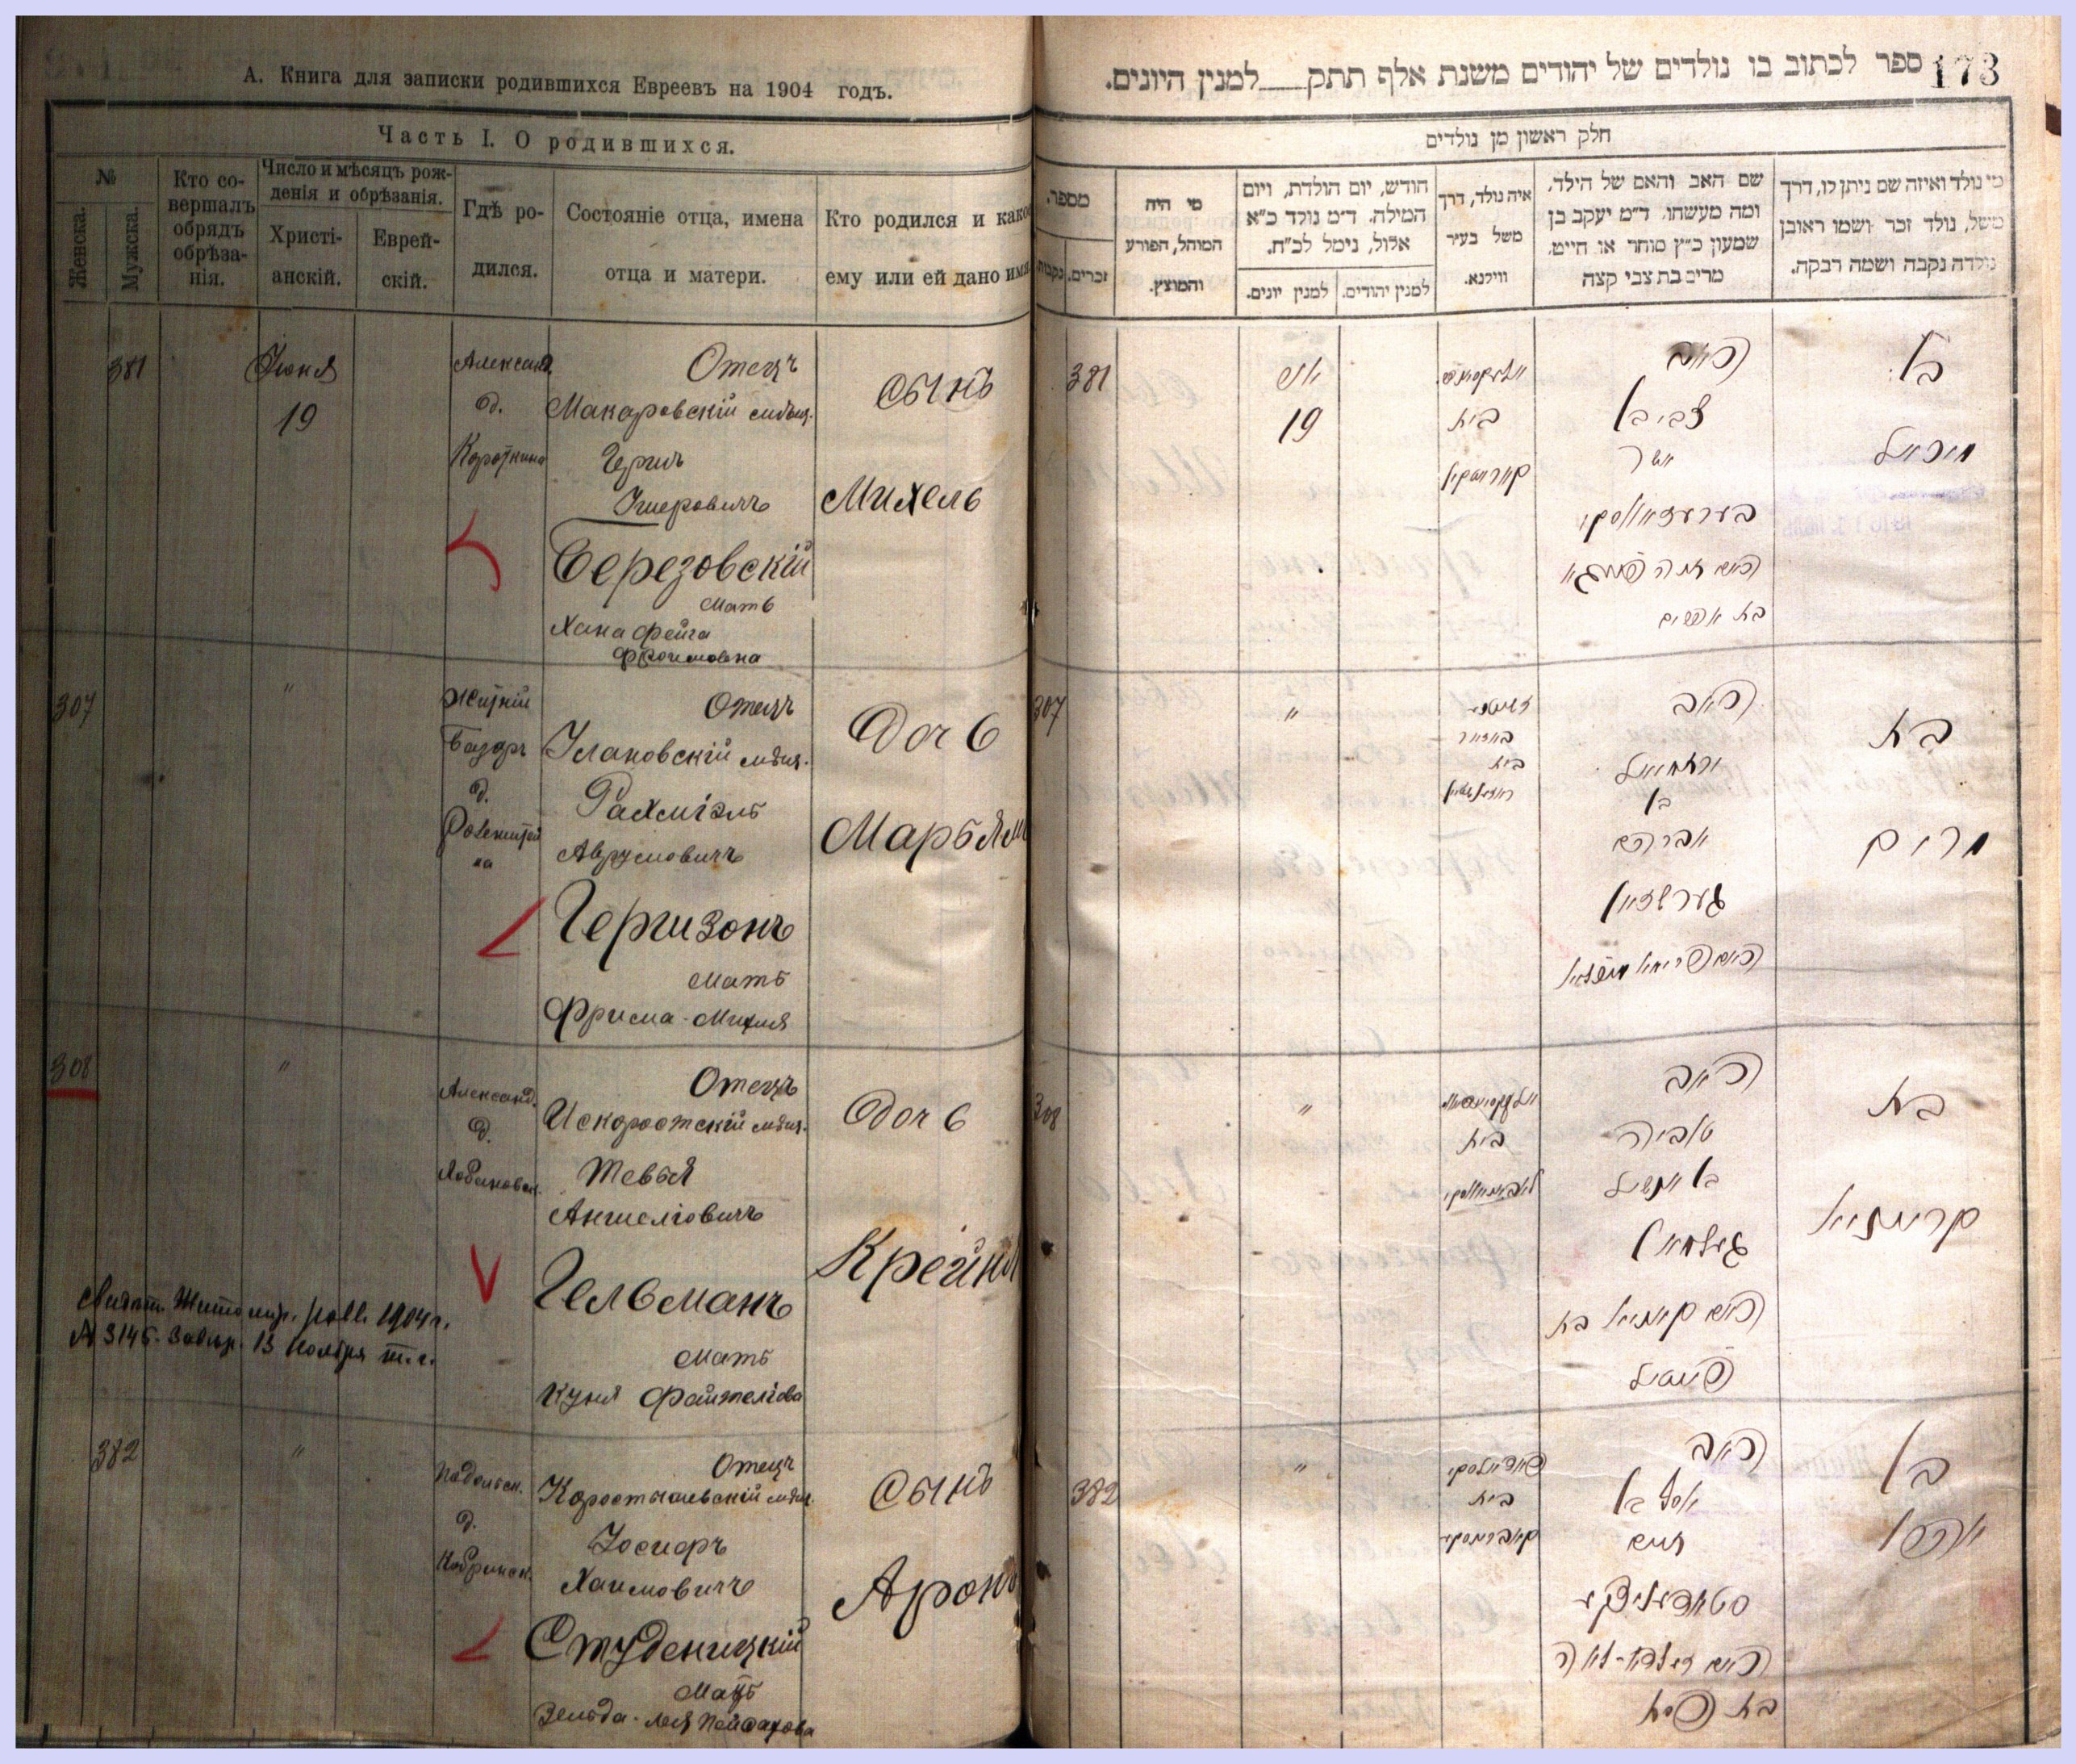 А. Книга для записки родившихся Евреевъ на 1904 годъ.
Часть I. О родившихся.
№
Женска.
Мужска.
Кто со-
вершалъ
обрядъ
обрѣза-
нія.
Число и мѣсяцъ рож-
денія и обрѣзанія.
Христі-
анскій.
Еврей-
скій.
Гдѣ ро-
дился.
Состояніе отца, имена
отца и матери.
Кто родился и како
ему или ей дано имя
381
Іюня
19
Александ.
д.
Отецъ
Макаровскій мѣщ.
Герш
Ушеровичъ
Березовскій
Мать
Хана Фейга
Фроимовна
Сынъ
Михель
307
"
Житній
Базаръ
д.
Отецъ
Улановскій мѣщ.
Рахміэль
Аврумовичъ
Гершзонъ
Мать
Фрима-
Дочь
Марьям
308
"
Александ.
д.
Отецъ
Искоростскій мѣщ.
Тевья
Аншеліовичъ
Гельманъ
Мать
Куня Файтеліова
Дочь
Крейня
Житомир. 1904 г.
№ 3145. 13 Ноября т.г.
382
"
Подольск.
д.
Кобринск.
Отецъ
Коростышевскій мѣщ.
Іосифъ
Хаимовичъ
Студеницкій
Мать
Зельда-Лея Пейсахова
Сынъ
Аронъ
173
ספר לכתוב בו נולדים של יהודים משנת אלף תתק למנין היונים.
חלק ראשון מן נולדים
מי נולד ואיזה שם ניתן לו, דרך
משל, נולד זכר ושמו ראובן
נולדה נקבה ושמה רבקה.
שם האב והאם של הילד,
ומה מעשהו, ד״מ יעקב בן
שמעון כ״ץ סוחר או חייט,
מרים בת צבי קצה
איה נולד, דרך
משל בעיר
ווילנא.
חודש, יום הולדת, ויום
המילה, ד״מ נולד כ״א
אלול, נימל לכ״ח.
למנין יהודים.
למנין יונים.
מי היה
המוהל, הפורע
והמוצץ.
מספר.
זכרים.
נקבות
בן
האב
צבי בן
אשר
בערעזאווסקי
האם חנה פייגא
בת אפרים
בית
יוני
19
381
בת
מרים
האב
ירחמיאל
בן
אברהם
גערשזאן
בית
"
307
בת
קריינא
האב
טוביה
בן אנשיל
געלמאן
האם קוניא בת
פייטיל
בית
"
308
בן
אהרן
האב
יוסף בן
חיים
סטודעניצקי
האם זעלדא-לאה
בת פסח
בית
"
382